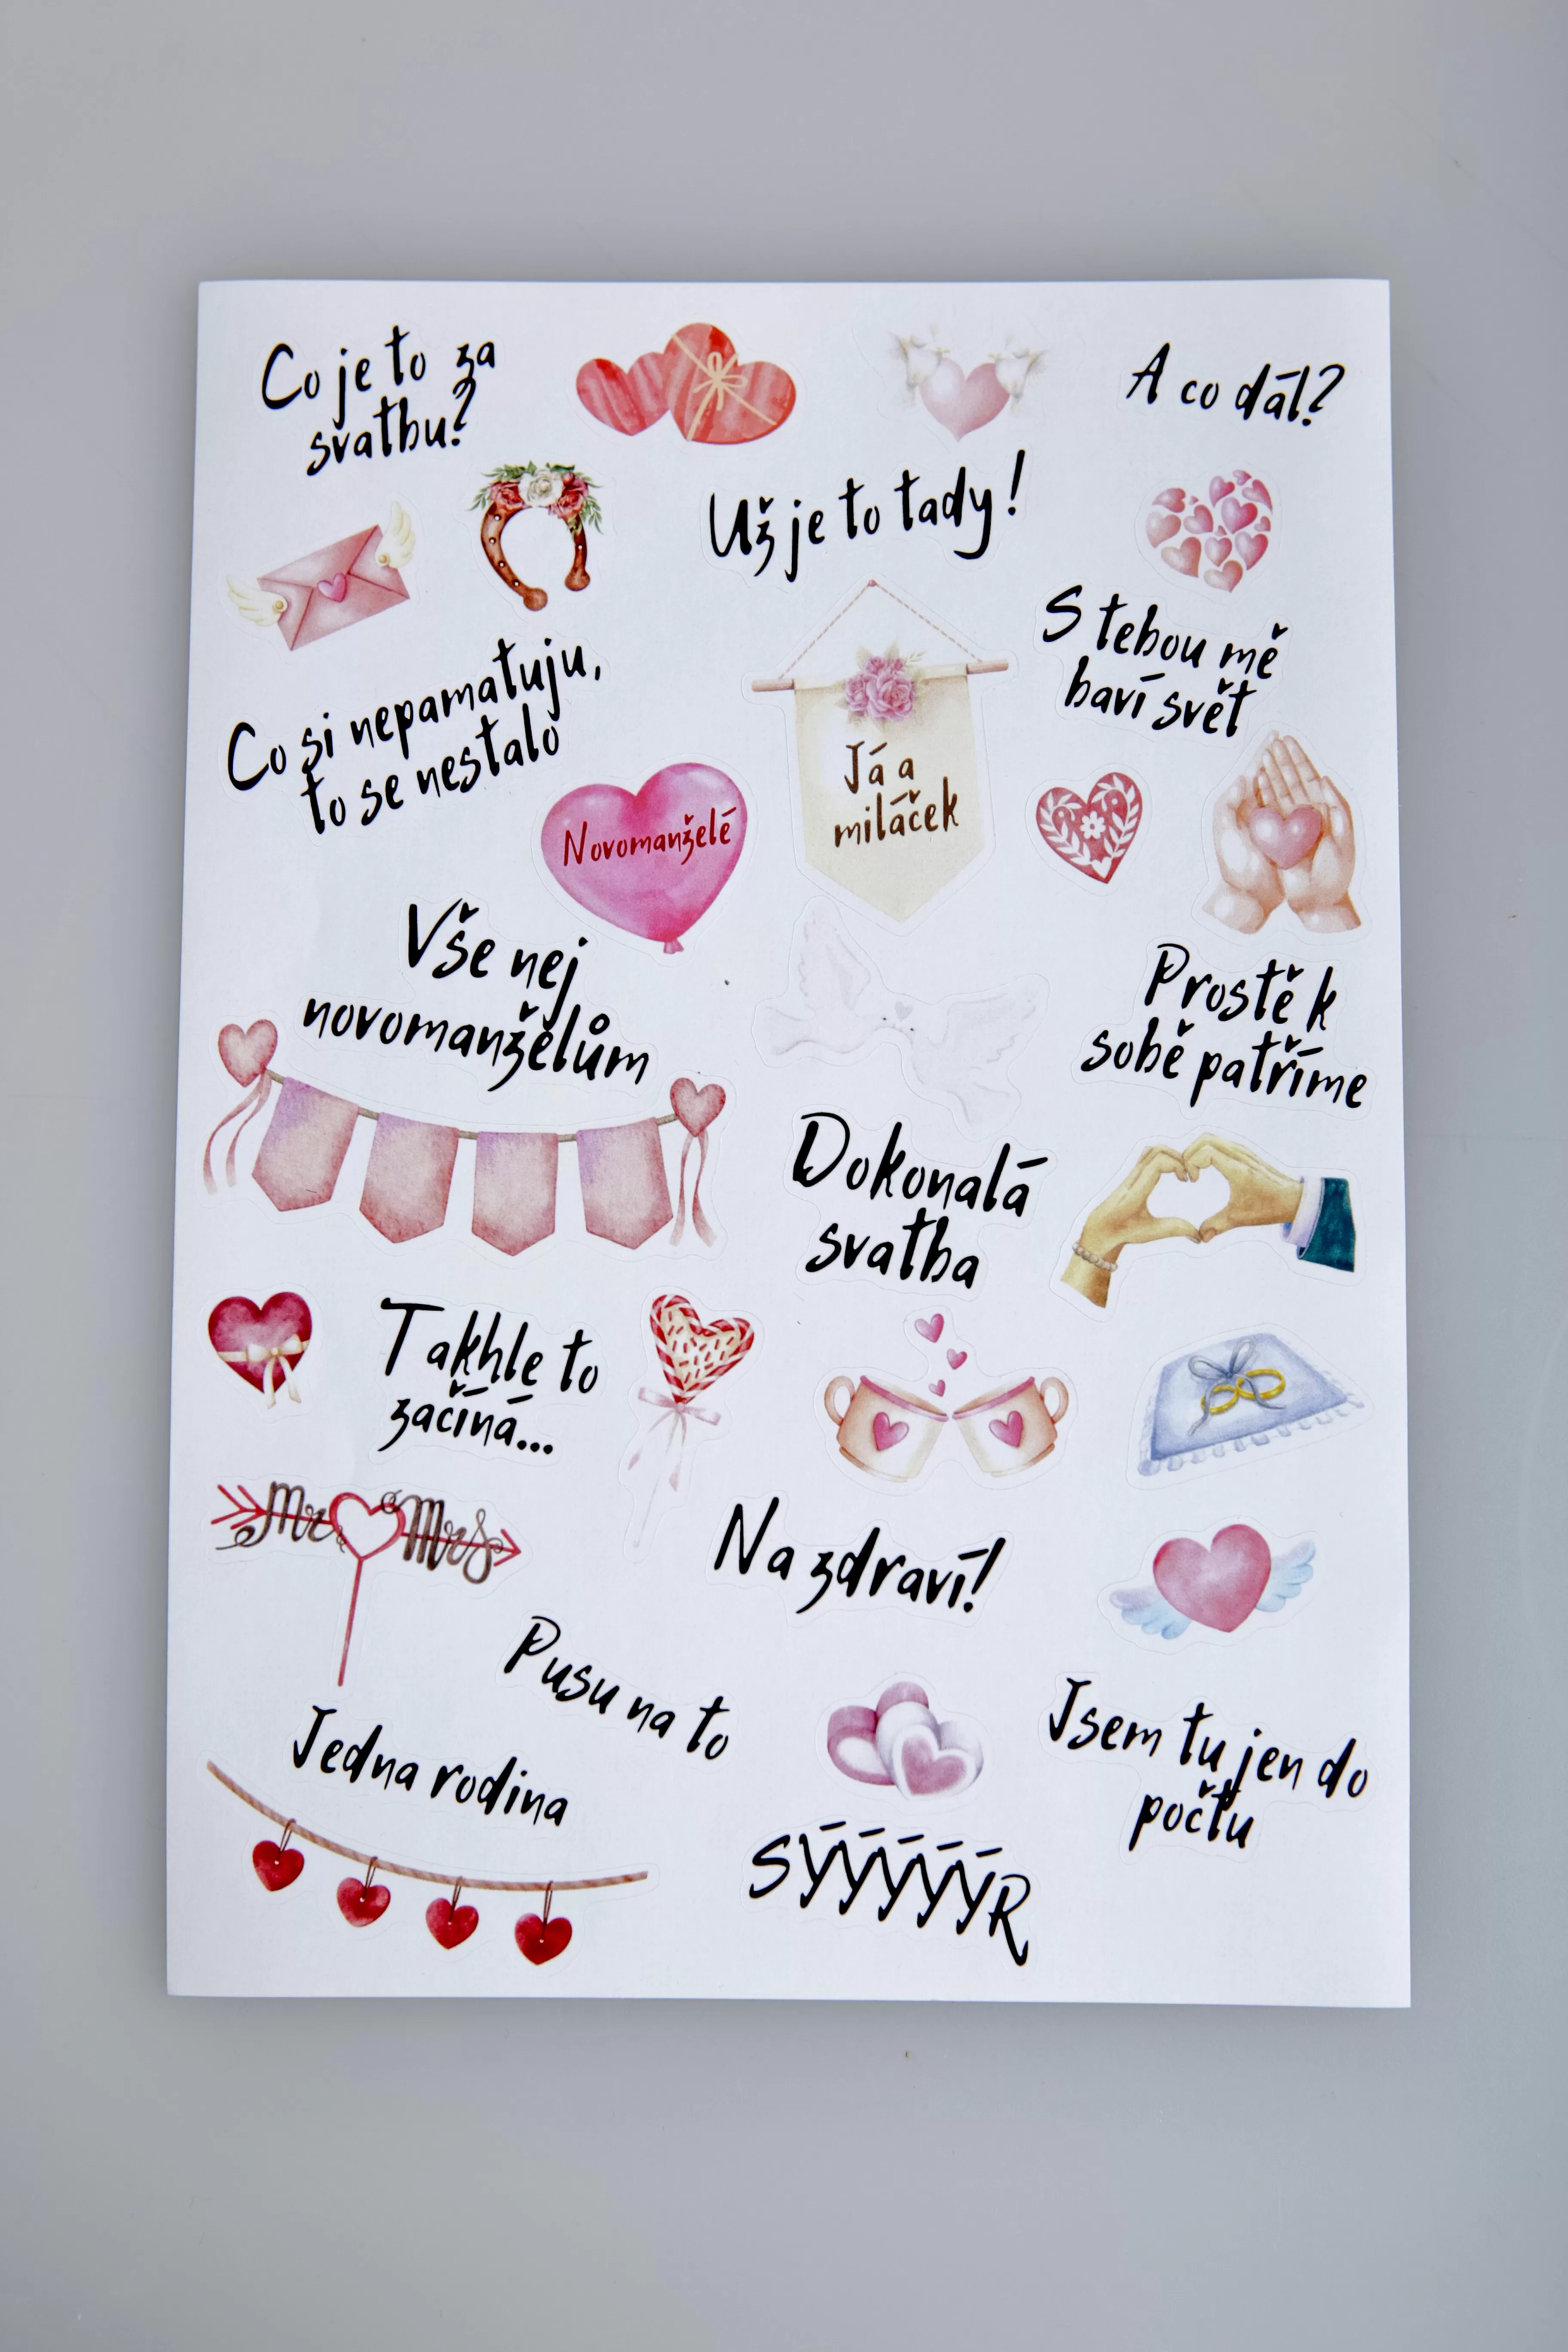 Co je to za
svatbu?
A co dál?
Už je to tady!
S tebou mě
baví svět
Co si nepamatuju,
to se nestalo
Já a
miláček
Novomanželé
Vše nej
novomanželům
Prostě k
sobě patříme
Dokonalá
svatba
Takhle to
začíná...
Mr Mrs
Na zdraví!
Pusu na to
Jedna rodina
Jsem tu jen do
počtu
SÝÝÝÝÝR